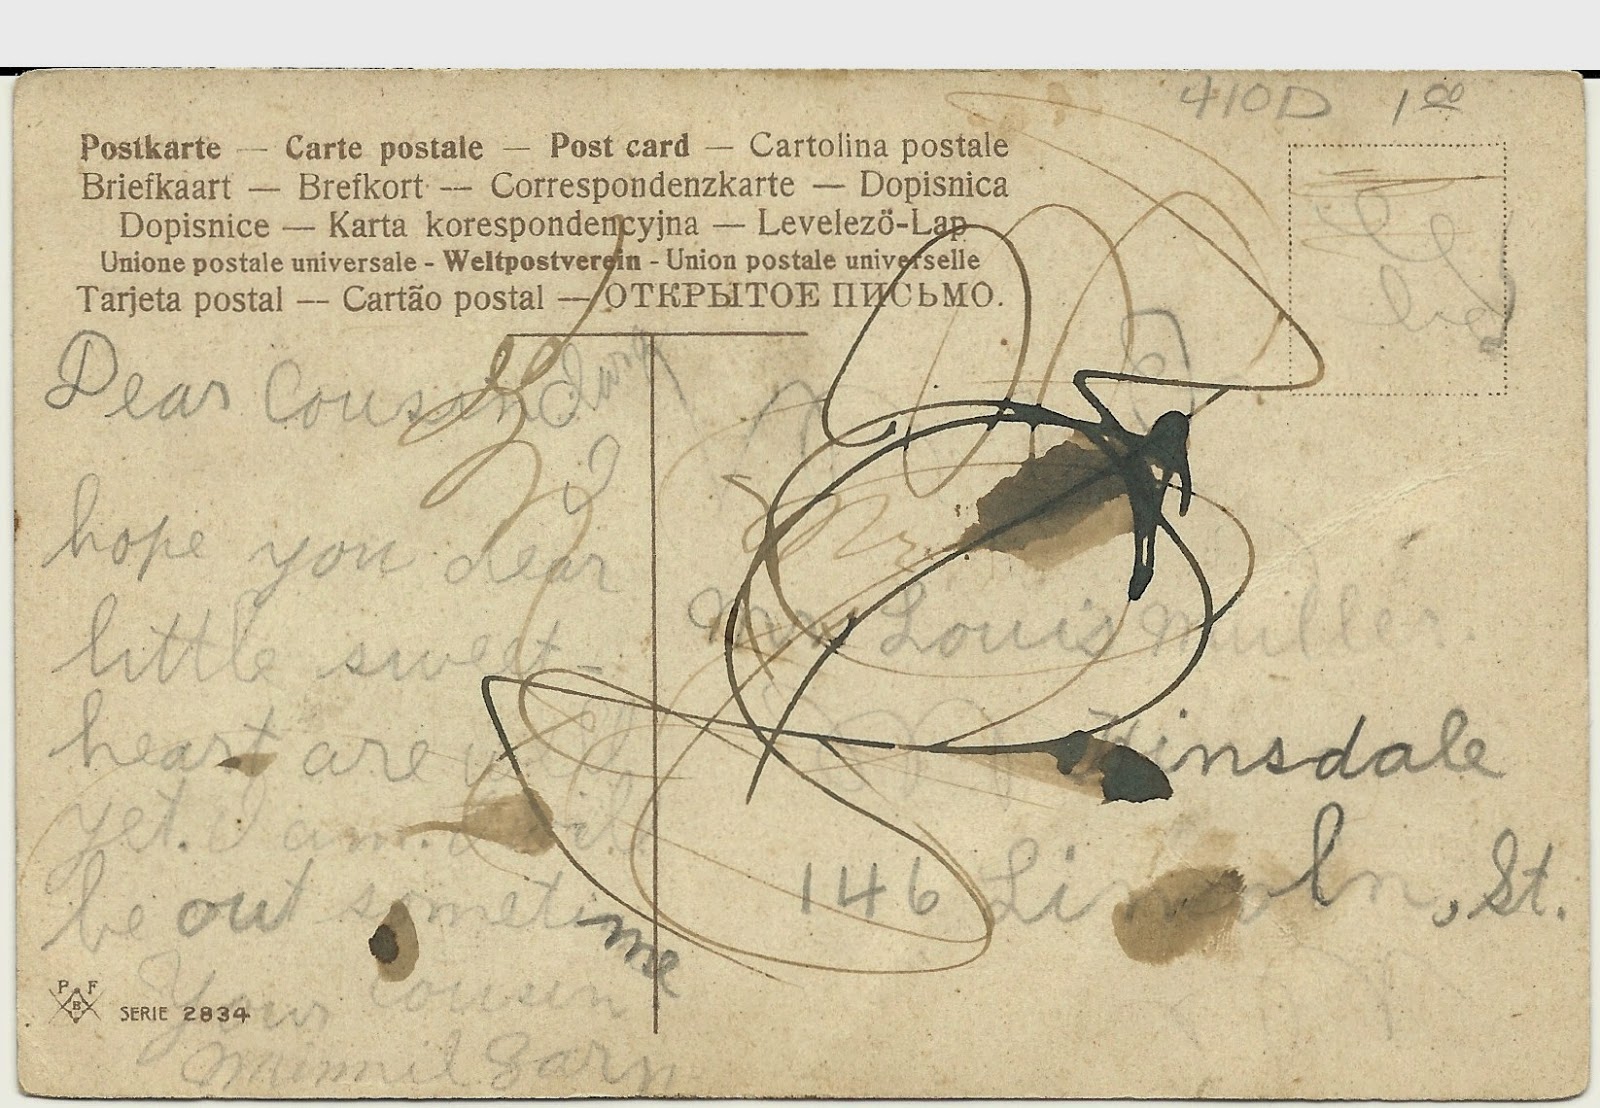 410D 1 00
Postkarte — Carte postale — Post card — Cartolina postale
Briefkaart — Brefkort — Correspondenzkarte — Dopisnica
Dopisnice — Karta korespondencyjna — Levelező-Lap
Unione postale universale - Weltpostverein - Union postale universelle
Tarjeta postal — Cartão postal — ОТКРЫТОЕ ПИСЬМО.
Dear Cousin
I
hope you dear
little sweet-
heart are well
yet. I am.
be out sometime
Your cousin
P F
B
SERIE 2834
Mr.
Louis Muller.
Hinsdale
146 Lincoln, St.